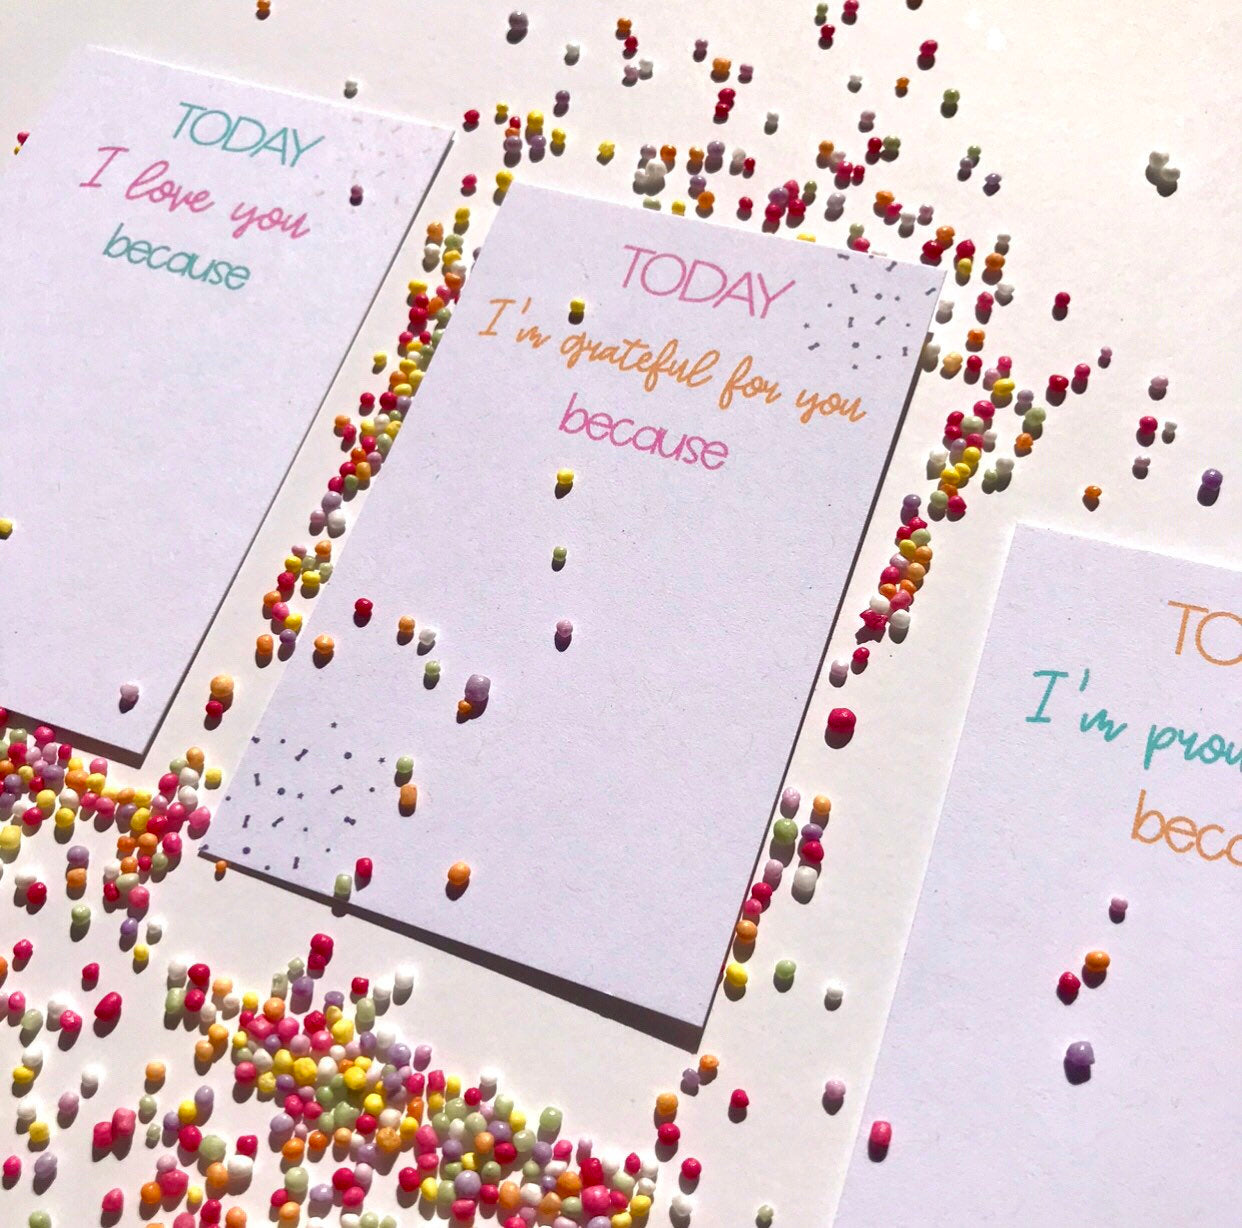 TODAY
I love you
because
TODAY
I'm grateful for you
because
I'm